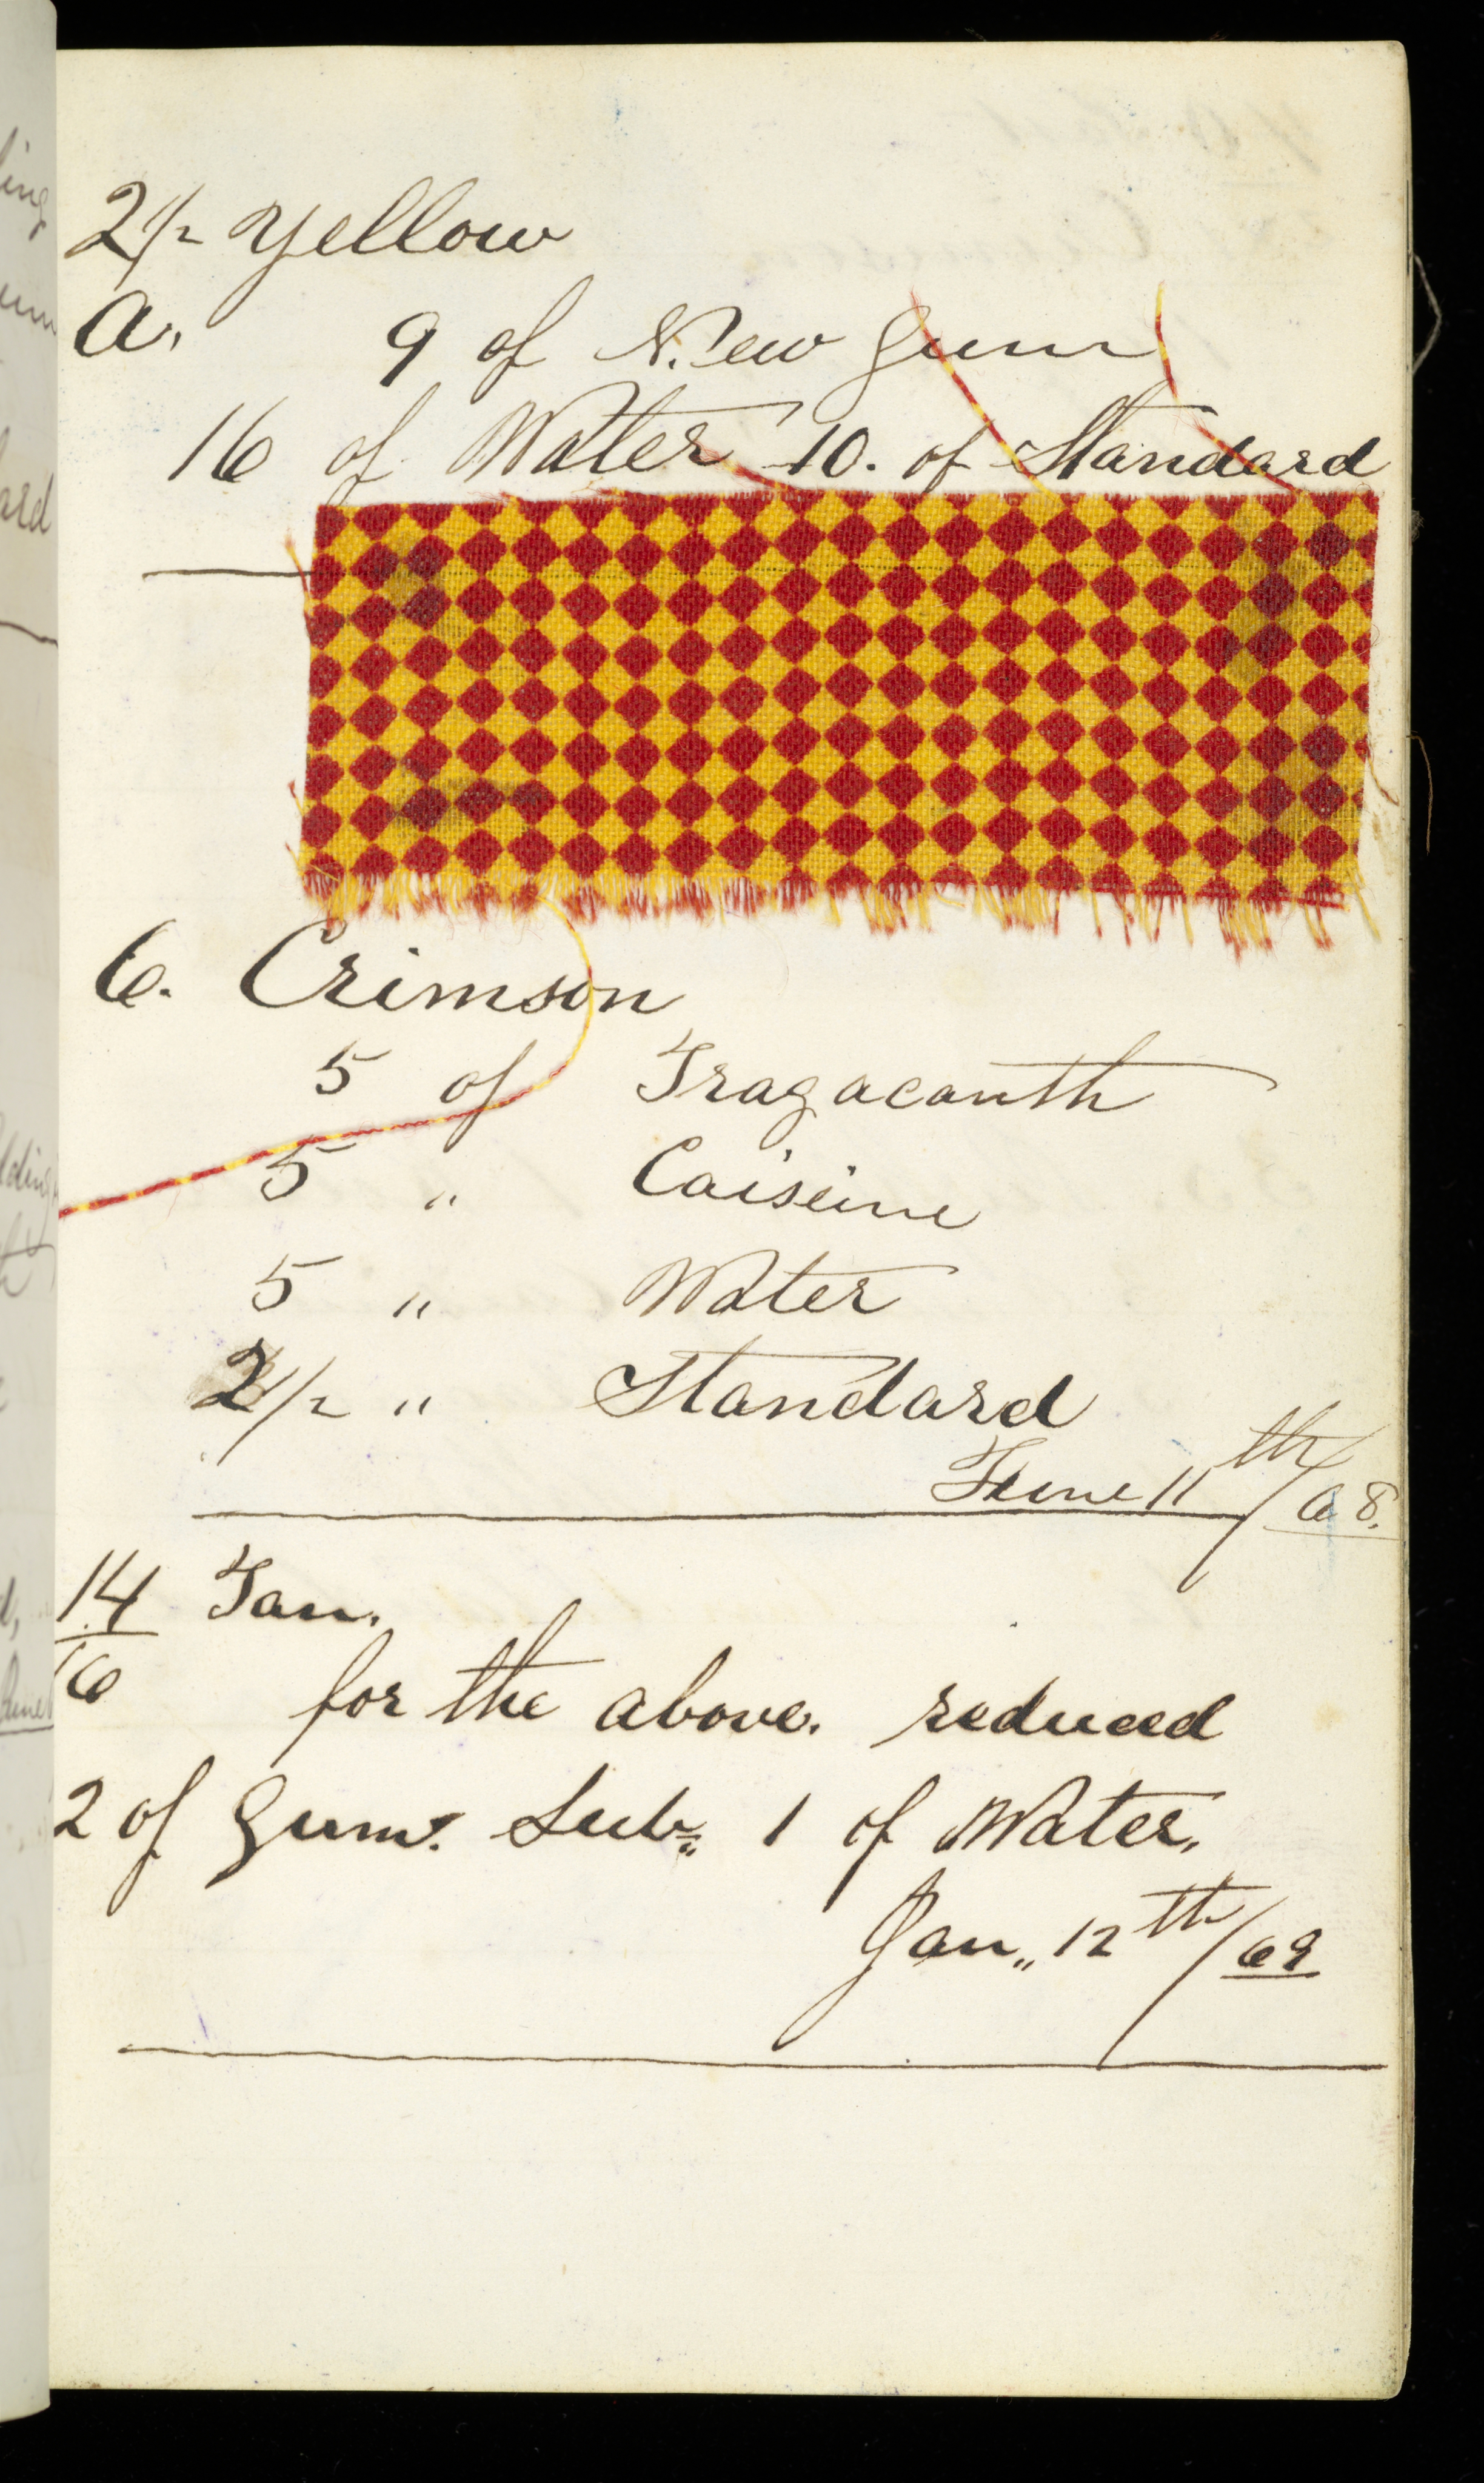 2 1/2 Yellow
a. 9 of New Gum
16 of Water 10. of Standard
6. Crimson
5 of Tragacanth
5 " Caiseine
5 " Water
2 1/2 " Standard
June 11th/68.
14/16 Tan.
for the above. reduced
2 of Gum. Sub. 1 of Water.
Jan. 12th/69